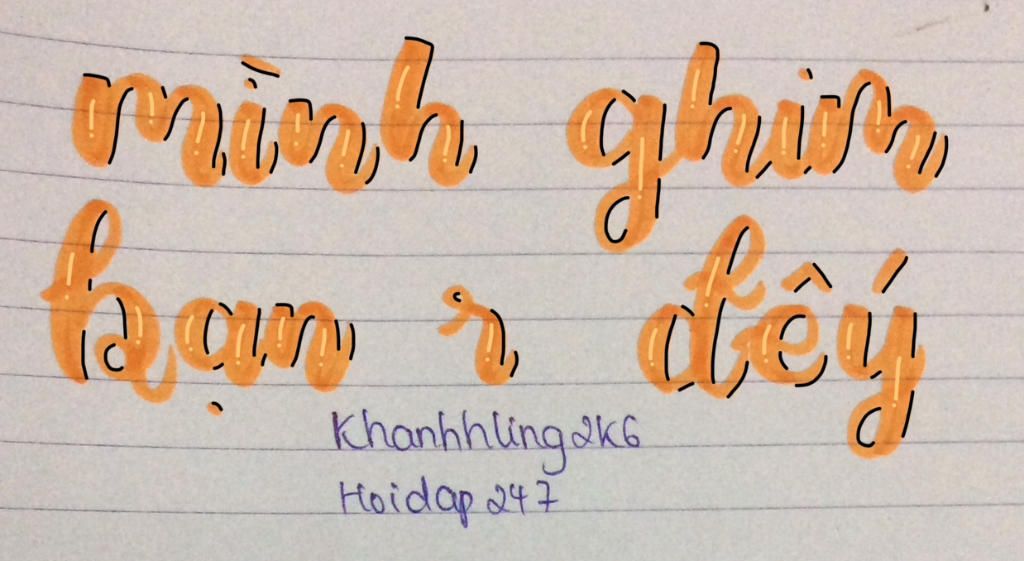 mình ghim
bạn r đếý
Khanhhling2k6
Hoidap247